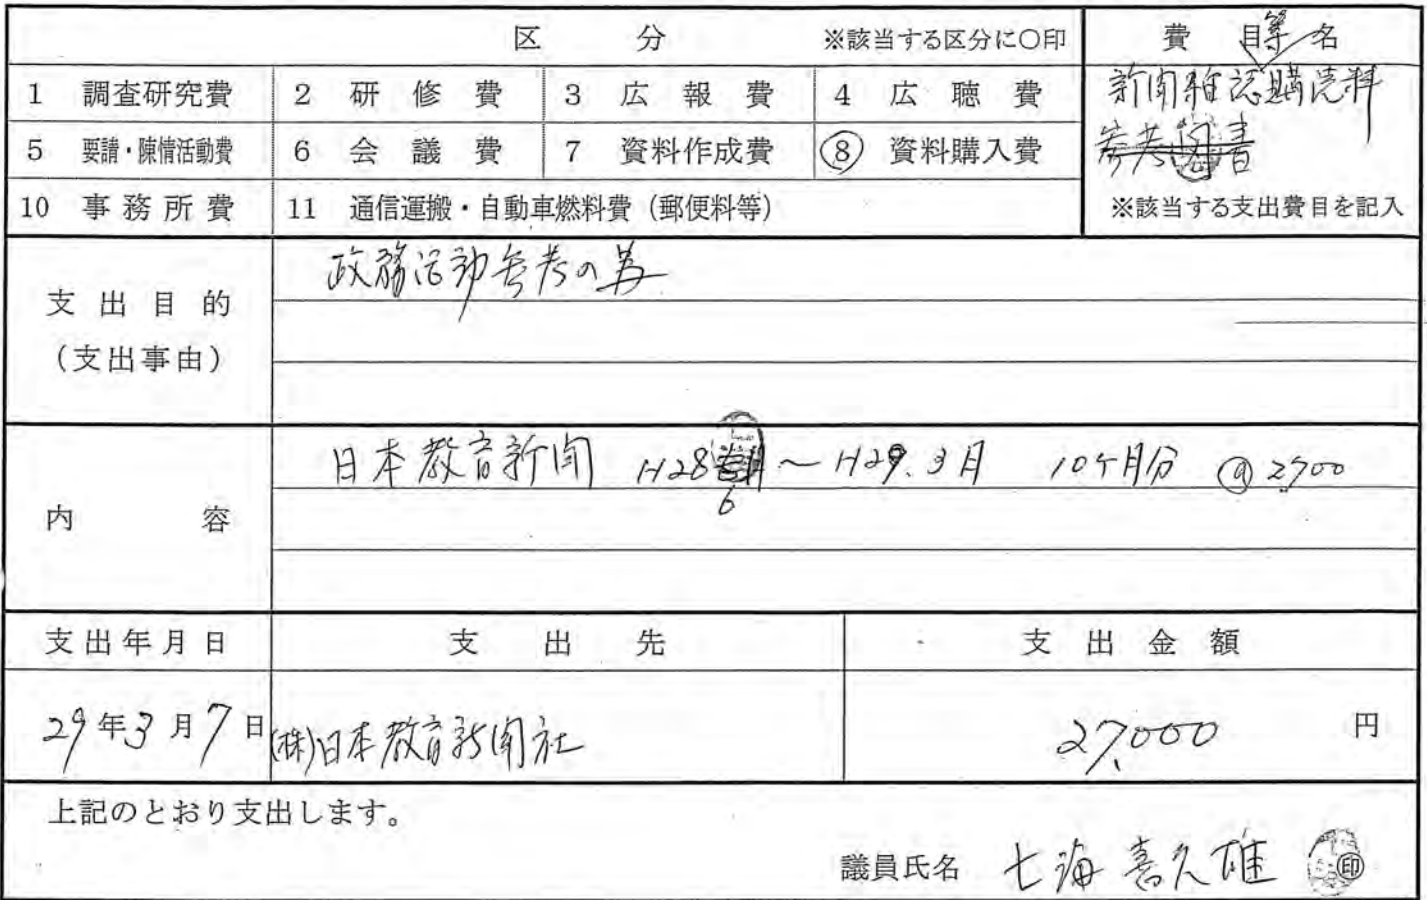 区 分 ※該当する区分に○印
費 目等名
1 調査研究費 2 研修費 3 広報費 4 広聴費
新聞雑誌購読料
5 要請・陳情活動費 6 会議費 7 資料作成費 ⑧ 資料購入費
参考図書
10 事務所費 11 通信運搬・自動車燃料費（郵便料等）
※該当する支出費目を記入
支出目的
（支出事由）
政務活動参考の為
内 容
日本教育新聞 H28 6 ～H29.3月 10ケ月分 @2,700
支出年月日 支出先 支出金額
29年3月7日 (株)日本教育新聞社 27,000 円
上記のとおり支出します。
議員氏名 七海喜久雄 ㊞